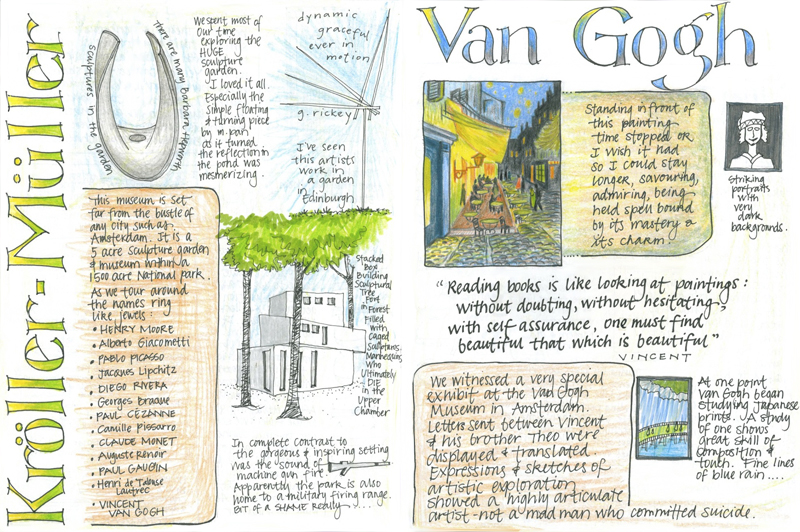 Kröller-Müller
There are many Barbara Hepworth
sculptures in the garden
We spent most of
our time
exploring the
HUGE
sculpture
garden.
I loved it all.
Especially the
simple floating
& turning piece
by m. pan
as it turned
the reflection in
the pond was
mesmerizing.
dynamic
graceful
ever in
motion
g. rickey
I've seen
this artists
work in
a garden
in
Edinburgh
This museum is set
far from the bustle of
any city such as
Amsterdam. It is a
5 acre sculpture garden
& museum within a
1500 acre National park.
As we tour around
the names ring
like jewels:
• HENRY MOORE
• Alberto Giacometti
• PABLO PICASSO
• Jacques Lipchitz
• DIEGO RIVERA
• Georges Braque
• PAUL CÉZANNE
• Camille Pissarro
• CLAUDE MONET
• Auguste Renoir
• PAUL GAUGIN
• Henri de Talouse
Lautrec
• VINCENT
VAN GOGH
Stacked
Box
Building
Sculptural
Tree
Fort
in Forest
Filled
with
Caged
Sculptures.
Mannequins
Who
Ultimately
DIE
in the
Upper
Chamber
In complete contrast to
the gorgeous & inspiring setting
was the sound of
machine gun fire
Apparently the park is also
home to a military firing range.
BIT of a SHAME Really.....
Van Gogh
Standing in front of
this painting
time stopped or
I wish it had
so I could stay
longer, savouring,
admiring, being
held spell bound
by its mastery &
its charm
striking
portraits
with
very
dark
backgrounds.
"Reading books is like looking at paintings:
without doubting, without hesitating,
with self assurance, one must find
beautiful that which is beautiful"
VINCENT
We witnessed a very special
exhibit at the Van Gogh
Museum in Amsterdam.
Letters sent between Vincent
& his brother Theo were
displayed & translated
Expressions & sketches of
artistic exploration
showed a highly articulate
artist - not a mad man who committed suicide.
At one point
Van Gogh began
studying Japanese
prints. A study
of one shows
great skill of
composition &
touch. Fine lines
of blue rain....